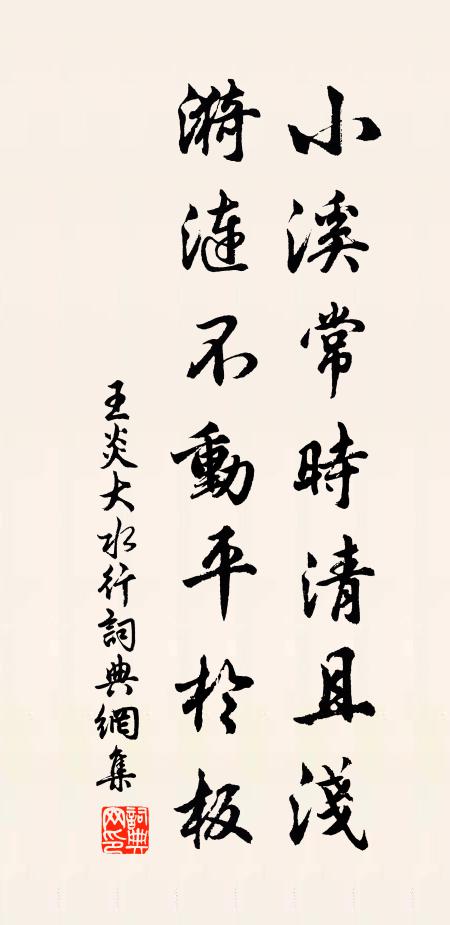 小溪常時清且淺
漪漣不動平於板
王炎大水行詞典網集
詞典網印